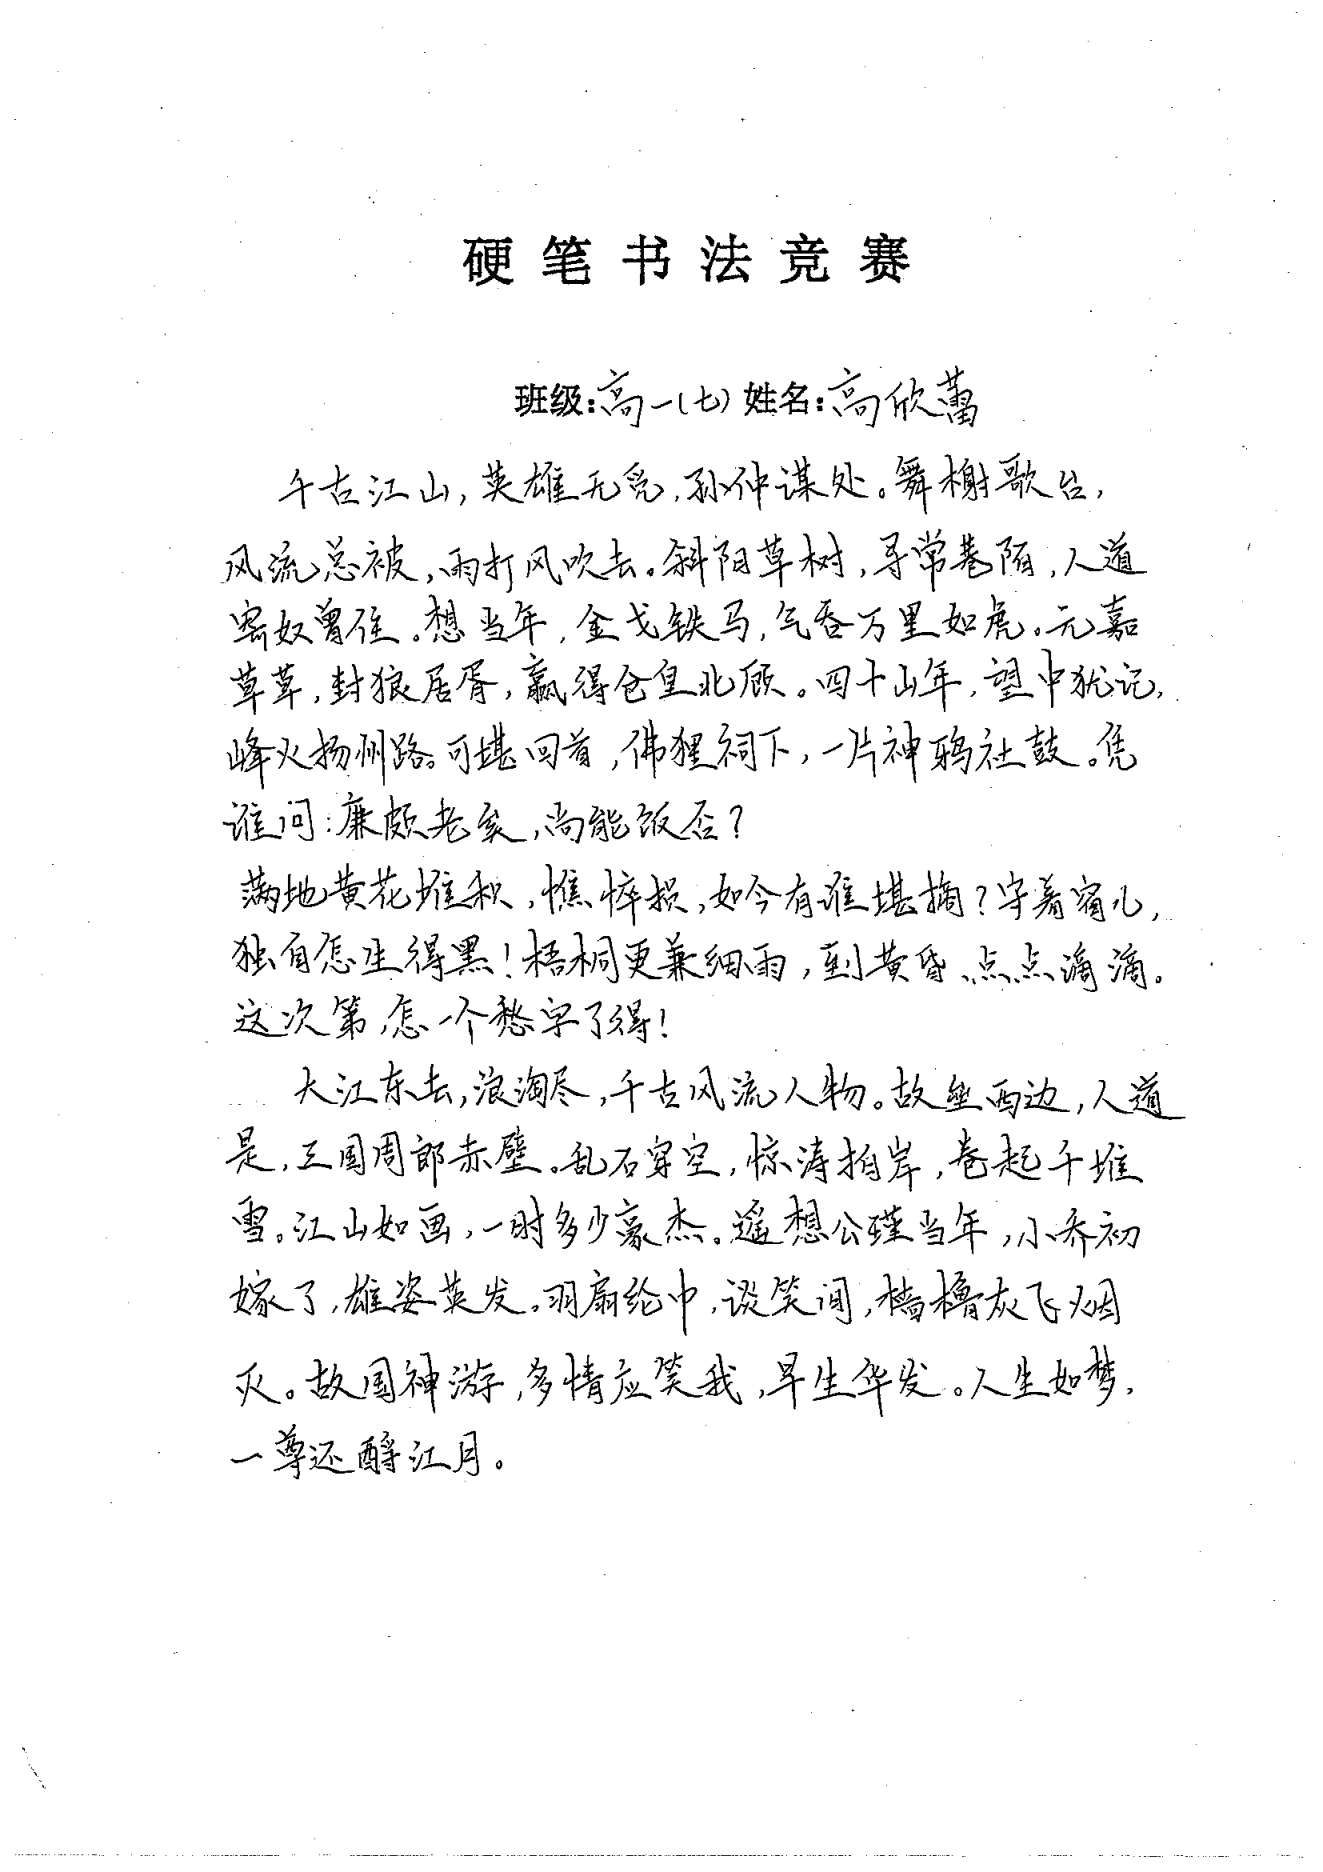 硬笔书法竞赛
班级:高一(七) 姓名:高欣蕾
千古江山,英雄无觅,孙仲谋处。舞榭歌台,
风流总被,雨打风吹去。斜阳草树,寻常巷陌,人道
寄奴曾住。想当年,金戈铁马,气吞万里如虎。元嘉
草草,封狼居胥,赢得仓皇北顾。四十三年,望中犹记,
烽火扬州路。可堪回首,佛狸祠下,一片神鸦社鼓。凭
谁问:廉颇老矣,尚能饭否?
满地黄花堆积,憔悴损,如今有谁堪摘?守着窗儿,
独自怎生得黑!梧桐更兼细雨,到黄昏、点点滴滴。
这次第,怎一个愁字了得!
大江东去,浪淘尽,千古风流人物。故垒西边,人道
是,三国周郎赤壁。乱石穿空,惊涛拍岸,卷起千堆
雪。江山如画,一时多少豪杰。遥想公瑾当年,小乔初
嫁了,雄姿英发。羽扇纶巾,谈笑间,樯橹灰飞烟
灭。故国神游,多情应笑我,早生华发。人生如梦,
一尊还酹江月。